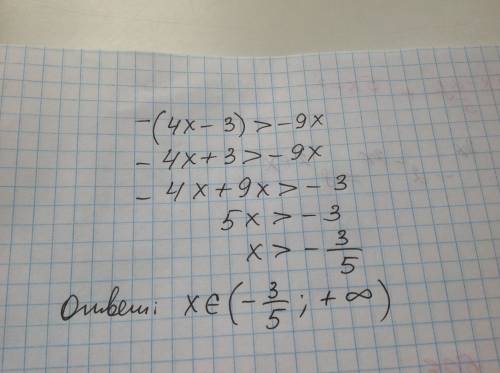 -(4x-3)>-9x
-4x+3>-9x
-4x+9x>-3
5x>-3
x>-3/5
Ответ: x∈(-3/5; +∞)